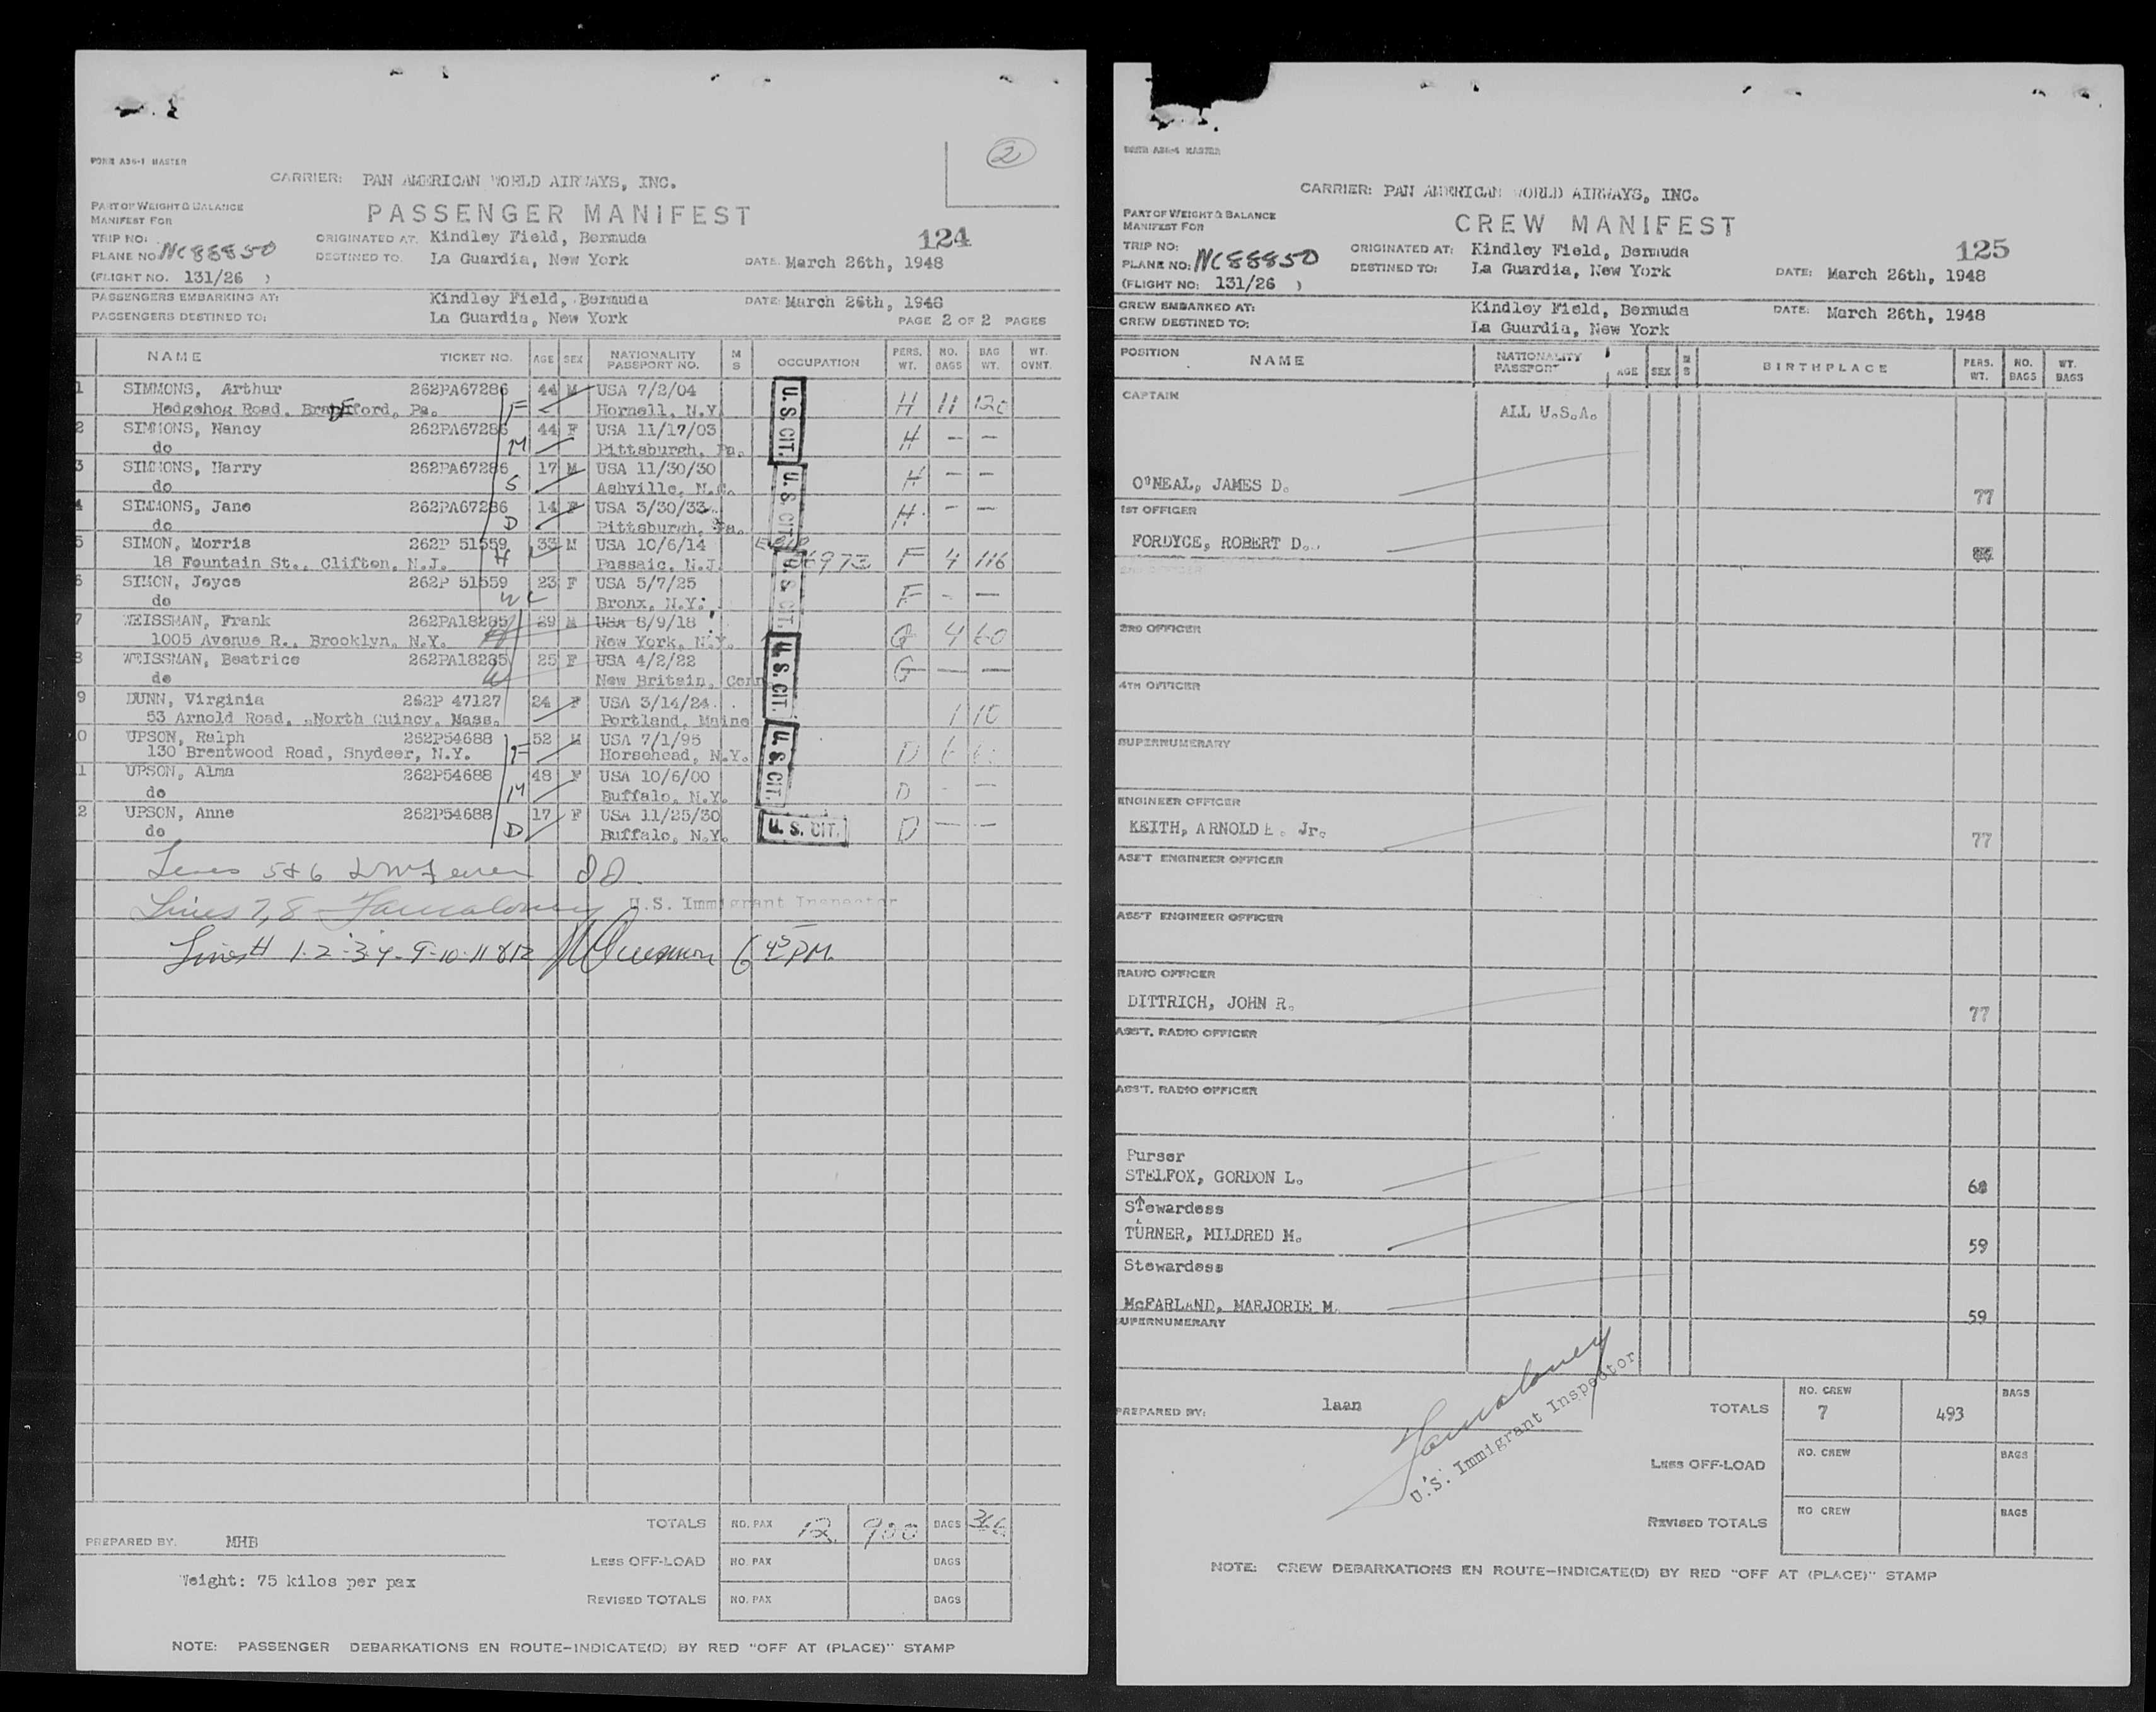 2
FORM A36-1 MASTER
CARRIER: PAN AMERICAN WORLD AIRWAYS, INC.
PART OF WEIGHT & BALANCE
MANIFEST FOR
PASSENGER MANIFEST
124
TRIP NO:
PLANE NO: NC88850
(FLIGHT NO. 131/26 )
ORIGINATED AT. Kindley Field, Bermuda
DESTINED TO. La Guardia, New York
DATE. March 26th, 1948
PASSENGERS EMBARKING AT: Kindley Field, Bermuda DATE: March 26th, 1948
PASSENGERS DESTINED TO: La Guardia, New York PAGE 2 OF 2 PAGES
NAME TICKET NO. AGE SEX NATIONALITY PASSPORT NO. M S OCCUPATION PERS. WT. NO. BAGS BAG WT. WT. OVNT.
1 SIMMONS, Arthur 262PA67286 44 M USA 7/2/04
Hedgehog Road, Pa. F Hornell, N.Y. H 11
2 SIMMONS, Nancy 262PA67286 44 F USA 11/17/03
do M Pittsburgh, Pa. H - -
3 SIMMONS, Harry 262PA67286 17 M USA 11/30/30
do S Ashville, N.C. H - -
4 SIMMONS, Jane 262PA67286 14 F USA 3/30/33
do D Pittsburgh, Pa. H - -
5 SIMON, Morris 262P 51559 33 M USA 10/6/14
18 Fountain St., Clifton, N.J. H Passaic, N.J. F 4 116
6 SIMON, Joyce 262P 51559 23 F USA 5/7/25
do W Bronx, N.Y. F - -
7 WEISSMAN, Frank 262PA18285 29 M USA 8/9/18
1005 Avenue R., Brooklyn, N.Y. H New York, N.Y. G 4 60
8 WEISSMAN, Beatrice 262PA18285 25 F USA 4/2/22
do W New Britain, Conn G - -
9 DUNN, Virginia 262P 47127 24 F USA 3/14/24
53 Arnold Road, North Quincy, Mass. Portland, Maine 1 10
10 UPSON, Ralph 262P54688 52 M USA 7/1/95
130 Brentwood Road, Snydeer, N.Y. F Horsehead, N.Y. D
11 UPSON, Alma 262P54688 48 F USA 10/6/00
do M Buffalo, N.Y. D - -
12 UPSON, Anne 262P54688 17 F USA 11/25/30
do D Buffalo, N.Y. D - -
U.S. CIT.
U.S. CIT.
U.S. CIT.
U.S. CIT.
U.S. CIT.
U. S. CIT.
Lines 5&6
Lines 7,8 U.S. Immigrant Inspector
Lines # 1-2-3-4-9-10-11&12 6 45 PM
TOTALS NO. PAX 12 900 BAGS
PREPARED BY. MHB
LESS OFF-LOAD NO. PAX BAGS
Weight: 75 kilos per pax
REVISED TOTALS NO. PAX BAGS
NOTE: PASSENGER DEBARKATIONS EN ROUTE-INDICATE(D) BY RED "OFF AT (PLACE)" STAMP
FORM A36-1 MASTER
CARRIER: PAN AMERICAN WORLD AIRWAYS, INC.
PART OF WEIGHT & BALANCE
MANIFEST FOR
CREW MANIFEST
125
TRIP NO:
PLANE NO: NC88850
(FLIGHT NO: 131/26 )
ORIGINATED AT: Kindley Field, Bermuda
DESTINED TO: La Guardia, New York
DATE: March 26th, 1948
CREW EMBARKED AT: Kindley Field, Bermuda DATE: March 26th, 1948
CREW DESTINED TO: La Guardia, New York
POSITION NAME NATIONALITY PASSPORT AGE SEX M S BIRTHPLACE PERS. WT. NO. BAGS WT. BAGS
CAPTAIN
ALL U.S.A.
O'NEAL, JAMES D. 77
1ST OFFICER
FORDYCE, ROBERT D.
2ND OFFICER
3RD OFFICER
4TH OFFICER
SUPERNUMERARY
ENGINEER OFFICER
KEITH, ARNOLD E. Jr. 77
ASS'T ENGINEER OFFICER
ASS'T ENGINEER OFFICER
RADIO OFFICER
DITTRICH, JOHN R. 77
ASS'T. RADIO OFFICER
ASS'T. RADIO OFFICER
Purser
STELFOX, GORDON L. 68
Stewardess
TURNER, MILDRED M. 59
Stewardess
McFARLAND, MARJORIE M. 59
SUPERNUMERARY
U.S. Immigrant Inspector
PREPARED BY: laan
TOTALS NO. CREW 7 493 BAGS
LESS OFF-LOAD NO. CREW BAGS
REVISED TOTALS NO CREW BAGS
NOTE: CREW DEBARKATIONS EN ROUTE-INDICATE(D) BY RED "OFF AT (PLACE)" STAMP